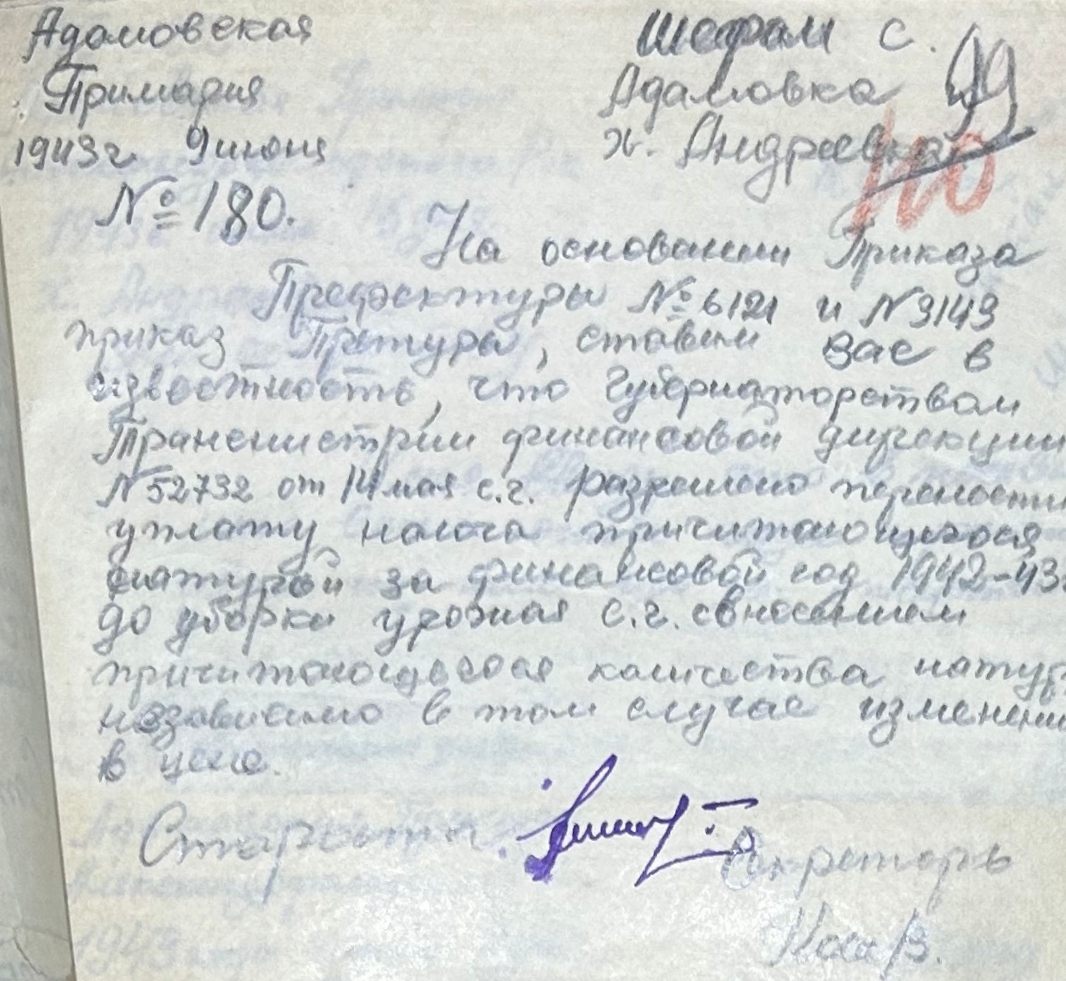 Адамовская
Примария
1943г. 9 июня
№ 180.
Шефам с.
Адамовка
х. Андреевка
99
110
На основании Приказа
Префектуры № 6121 и № 3143
приказ Претуры, ставим вас в
известность, что Губернаторством
Транснистрии финансовой дирекции
№ 52732 от 14 мая с.г. разрешено перенести
уплату налога причитающегося
натурой за финансовой год 1942-43г
до уборки урожая с.г. свносением
причитающегося количества натур
независимо в том случае изменени
в цене.
Староста
Секретарь